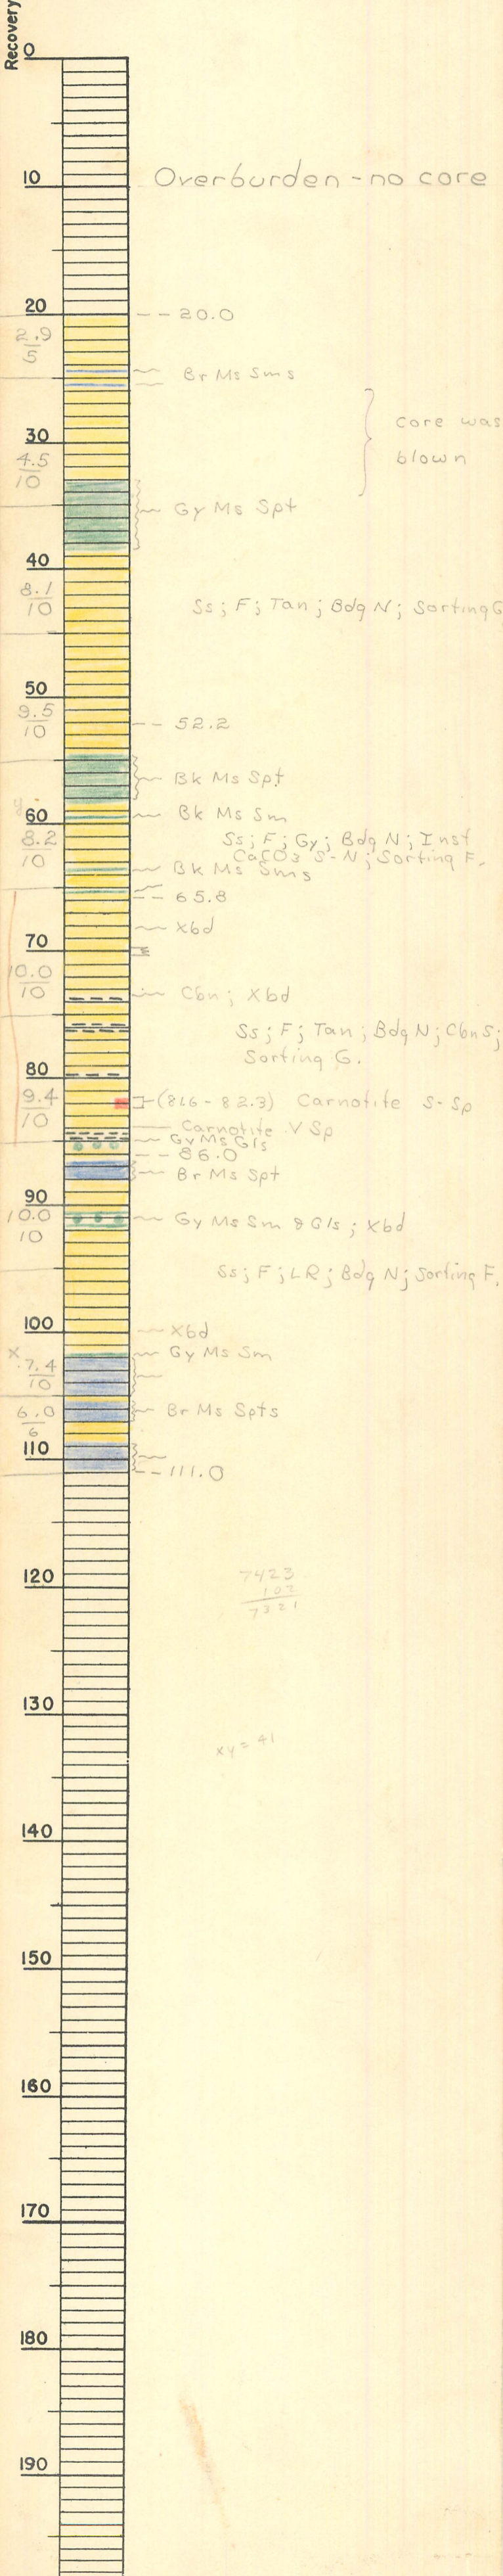 Recovery
0
10 Overburden - no core
20 -- 20.0
2.9
5
Br Ms Sms
core was
30
blown
4.5
10
Gy Ms Spt
40
8.1
10
Ss; F; Tan; Bdg N; Sorting G
50
9.5
10
-- 52.2
Bk Ms Spt
60 Bk Ms Sm
8.2
10
Ss; F; Gy; Bdg N; Inst
CaCO3 S-N; Sorting F.
Bk Ms Sms
-- 65.8
Xbd
70
10.0
10
Cbn; Xbd
Ss; F; Tan; Bdg N; Cbn S;
Sorting G.
80
9.4
10
(81.6 - 82.3) Carnotite S-Sp
Carnotite V Sp
Gy Ms Gls
-- 86.0
Br Ms Spt
90
10.0
10
Gy Ms Sm & Gls; Xbd
Ss; F; LR; Bdg N; Sorting F.
100 Xbd
Gy Ms Sm
x
7.4
10
6.0
6
Br Ms Spts
110
-- 111.0
120
7423
102
7321
130
xy = 41
140
150
160
170
180
190